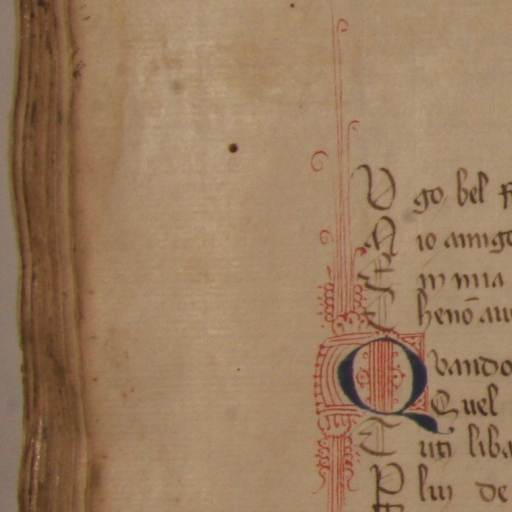 Vgo bel
Dio amigo
In mia
Chenō au
Quando
Quel
Tuti liba
Plui de